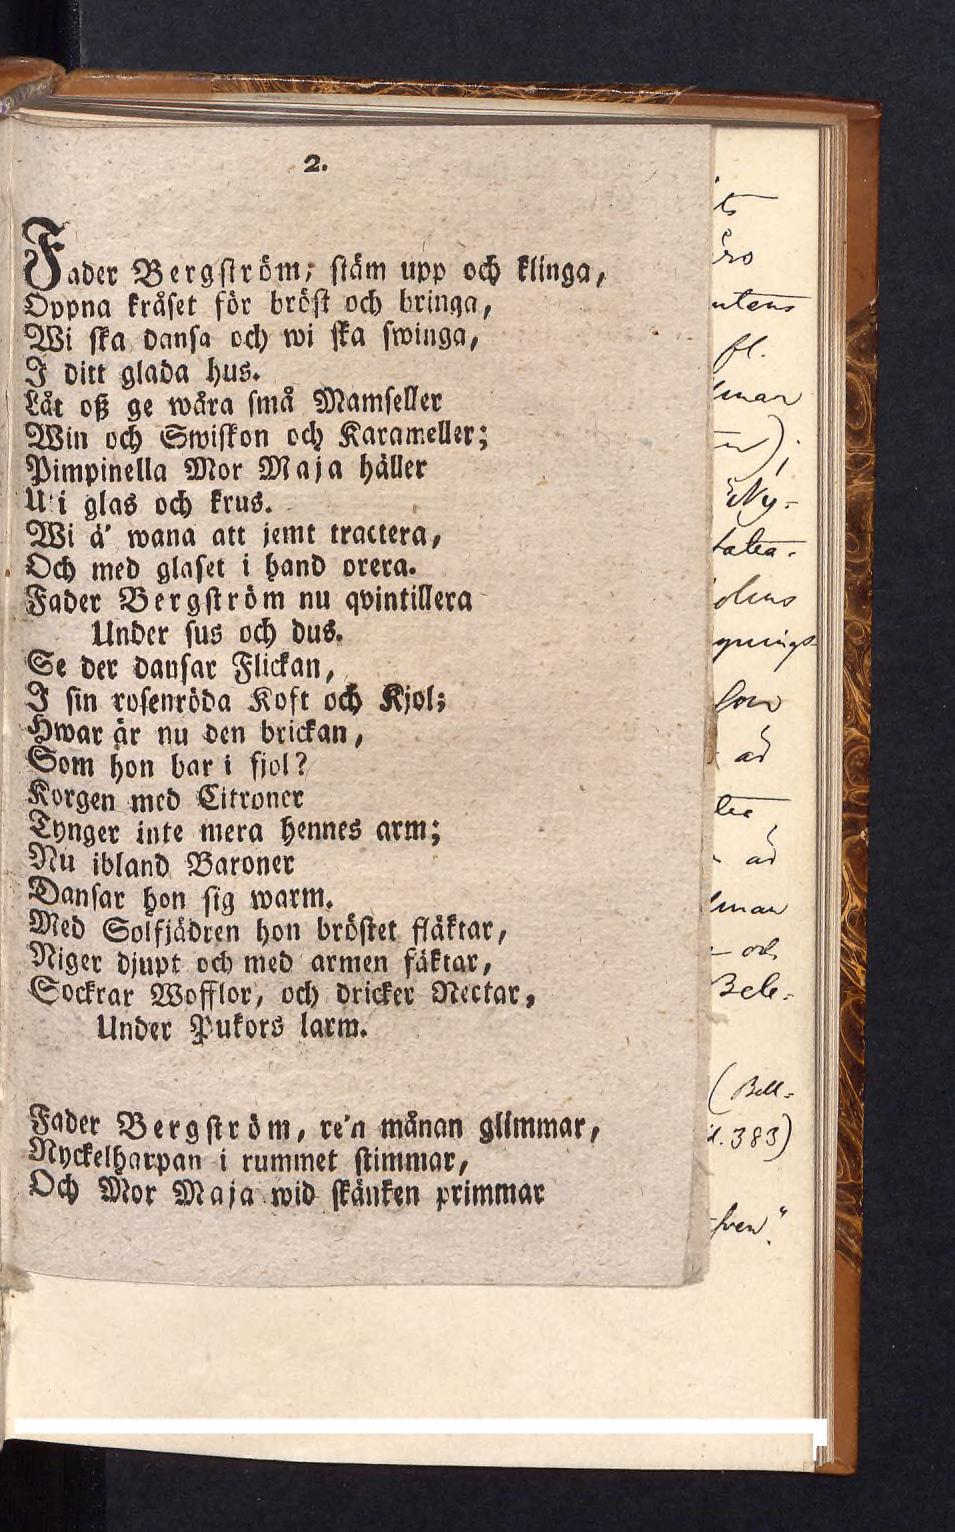 2.
Fader Bergström, stäm upp och klinga,
Öppna kråset för bröst och bringa,
Wi ska dansa och wi ska swinga,
I ditt glada hus.
Låt oß ge wåra små Mamseller
Win och Swiskon och Karameller;
Pimpinella Mor Maja häller
Ut i glas och krus.
Wi ä' wana att jemt tractera,
Och med glaset i hand orera.
Fader Bergström nu qvintillera
Under sus och dus.
Se der dansar Flickan,
I sin rosenröda Koft och Kjol;
Hwar är nu den brickan,
Som hon bar i fjol?
Korgen med Citroner
Tynger inte mera hennes arm;
Nu ibland Baroner
Dansar hon sig warm.
Med Solfjädren hon bröstet fläktar,
Niger djupt och med armen fäktar,
Sockrar Wofflor, och dricker Nectar,
Under Pukors larm.
Fader Bergström, re'n månan glimmar,
Nyckelharpan i rummet stimmar,
Och Mor Maja wid skänken primmar
ts
utens
fl.
Ny-
ad
ad
och
(Bell-
383)